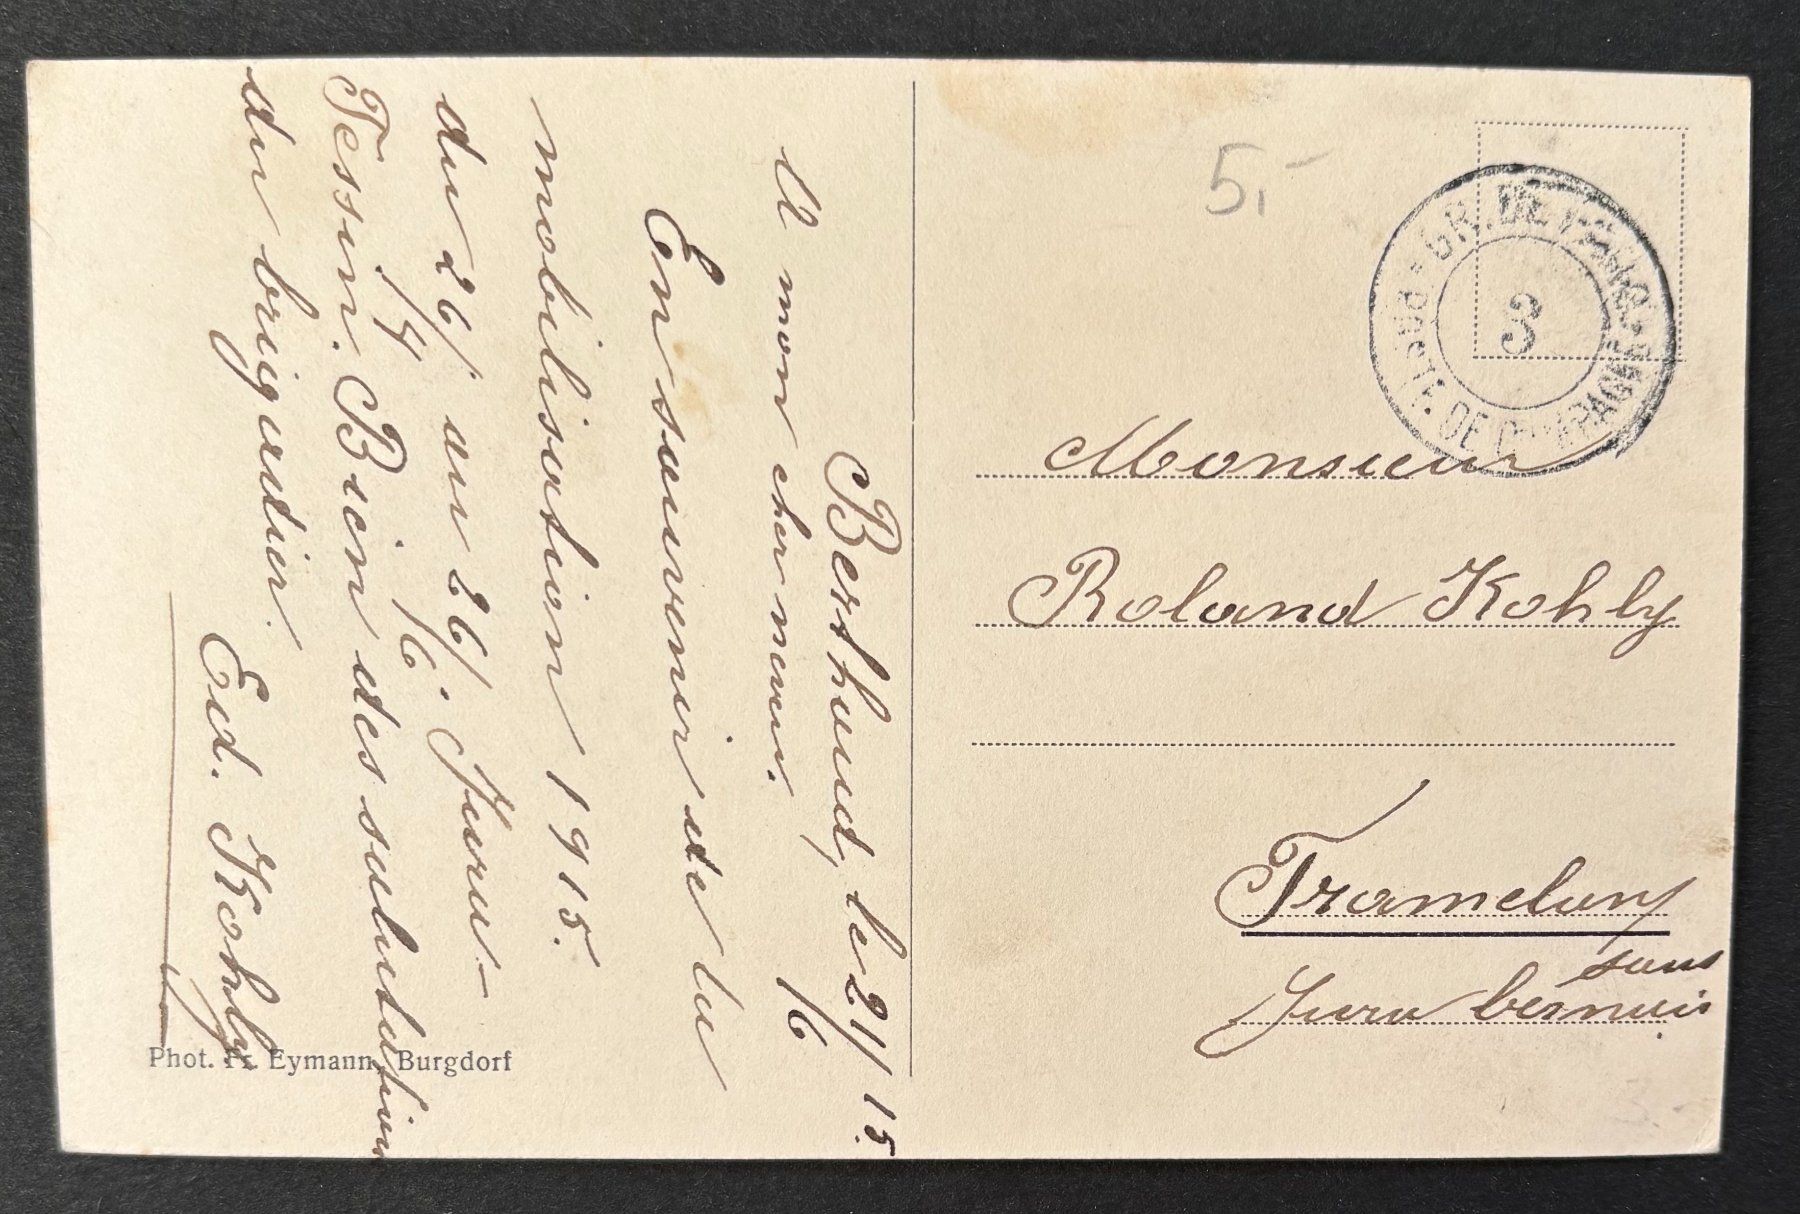 Berthoud, le 21/6 15.
A mon cher neveu.
En souvenir de la
mobilisation 1915.
du 26/4 au 26/6. Jura-
Tessin. Bien des salutations
du brigadier.
Ed. Kohly
Phot. Fr. Eymann, Burgdorf
5.-
GR. DE
POSTE DE CAMPAGNE
3
Monsieur
Roland Kohly
Tramelan
sous
Jura bernois
3.-